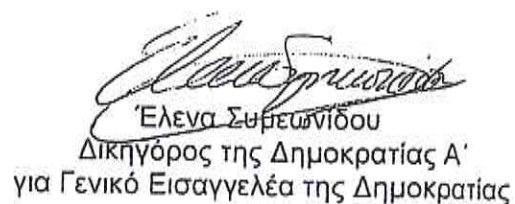 Έλενα Συμεωνίδου
Δικηγόρος της Δημοκρατίας Α΄
για Γενικό Εισαγγελέα της Δημοκρατίας